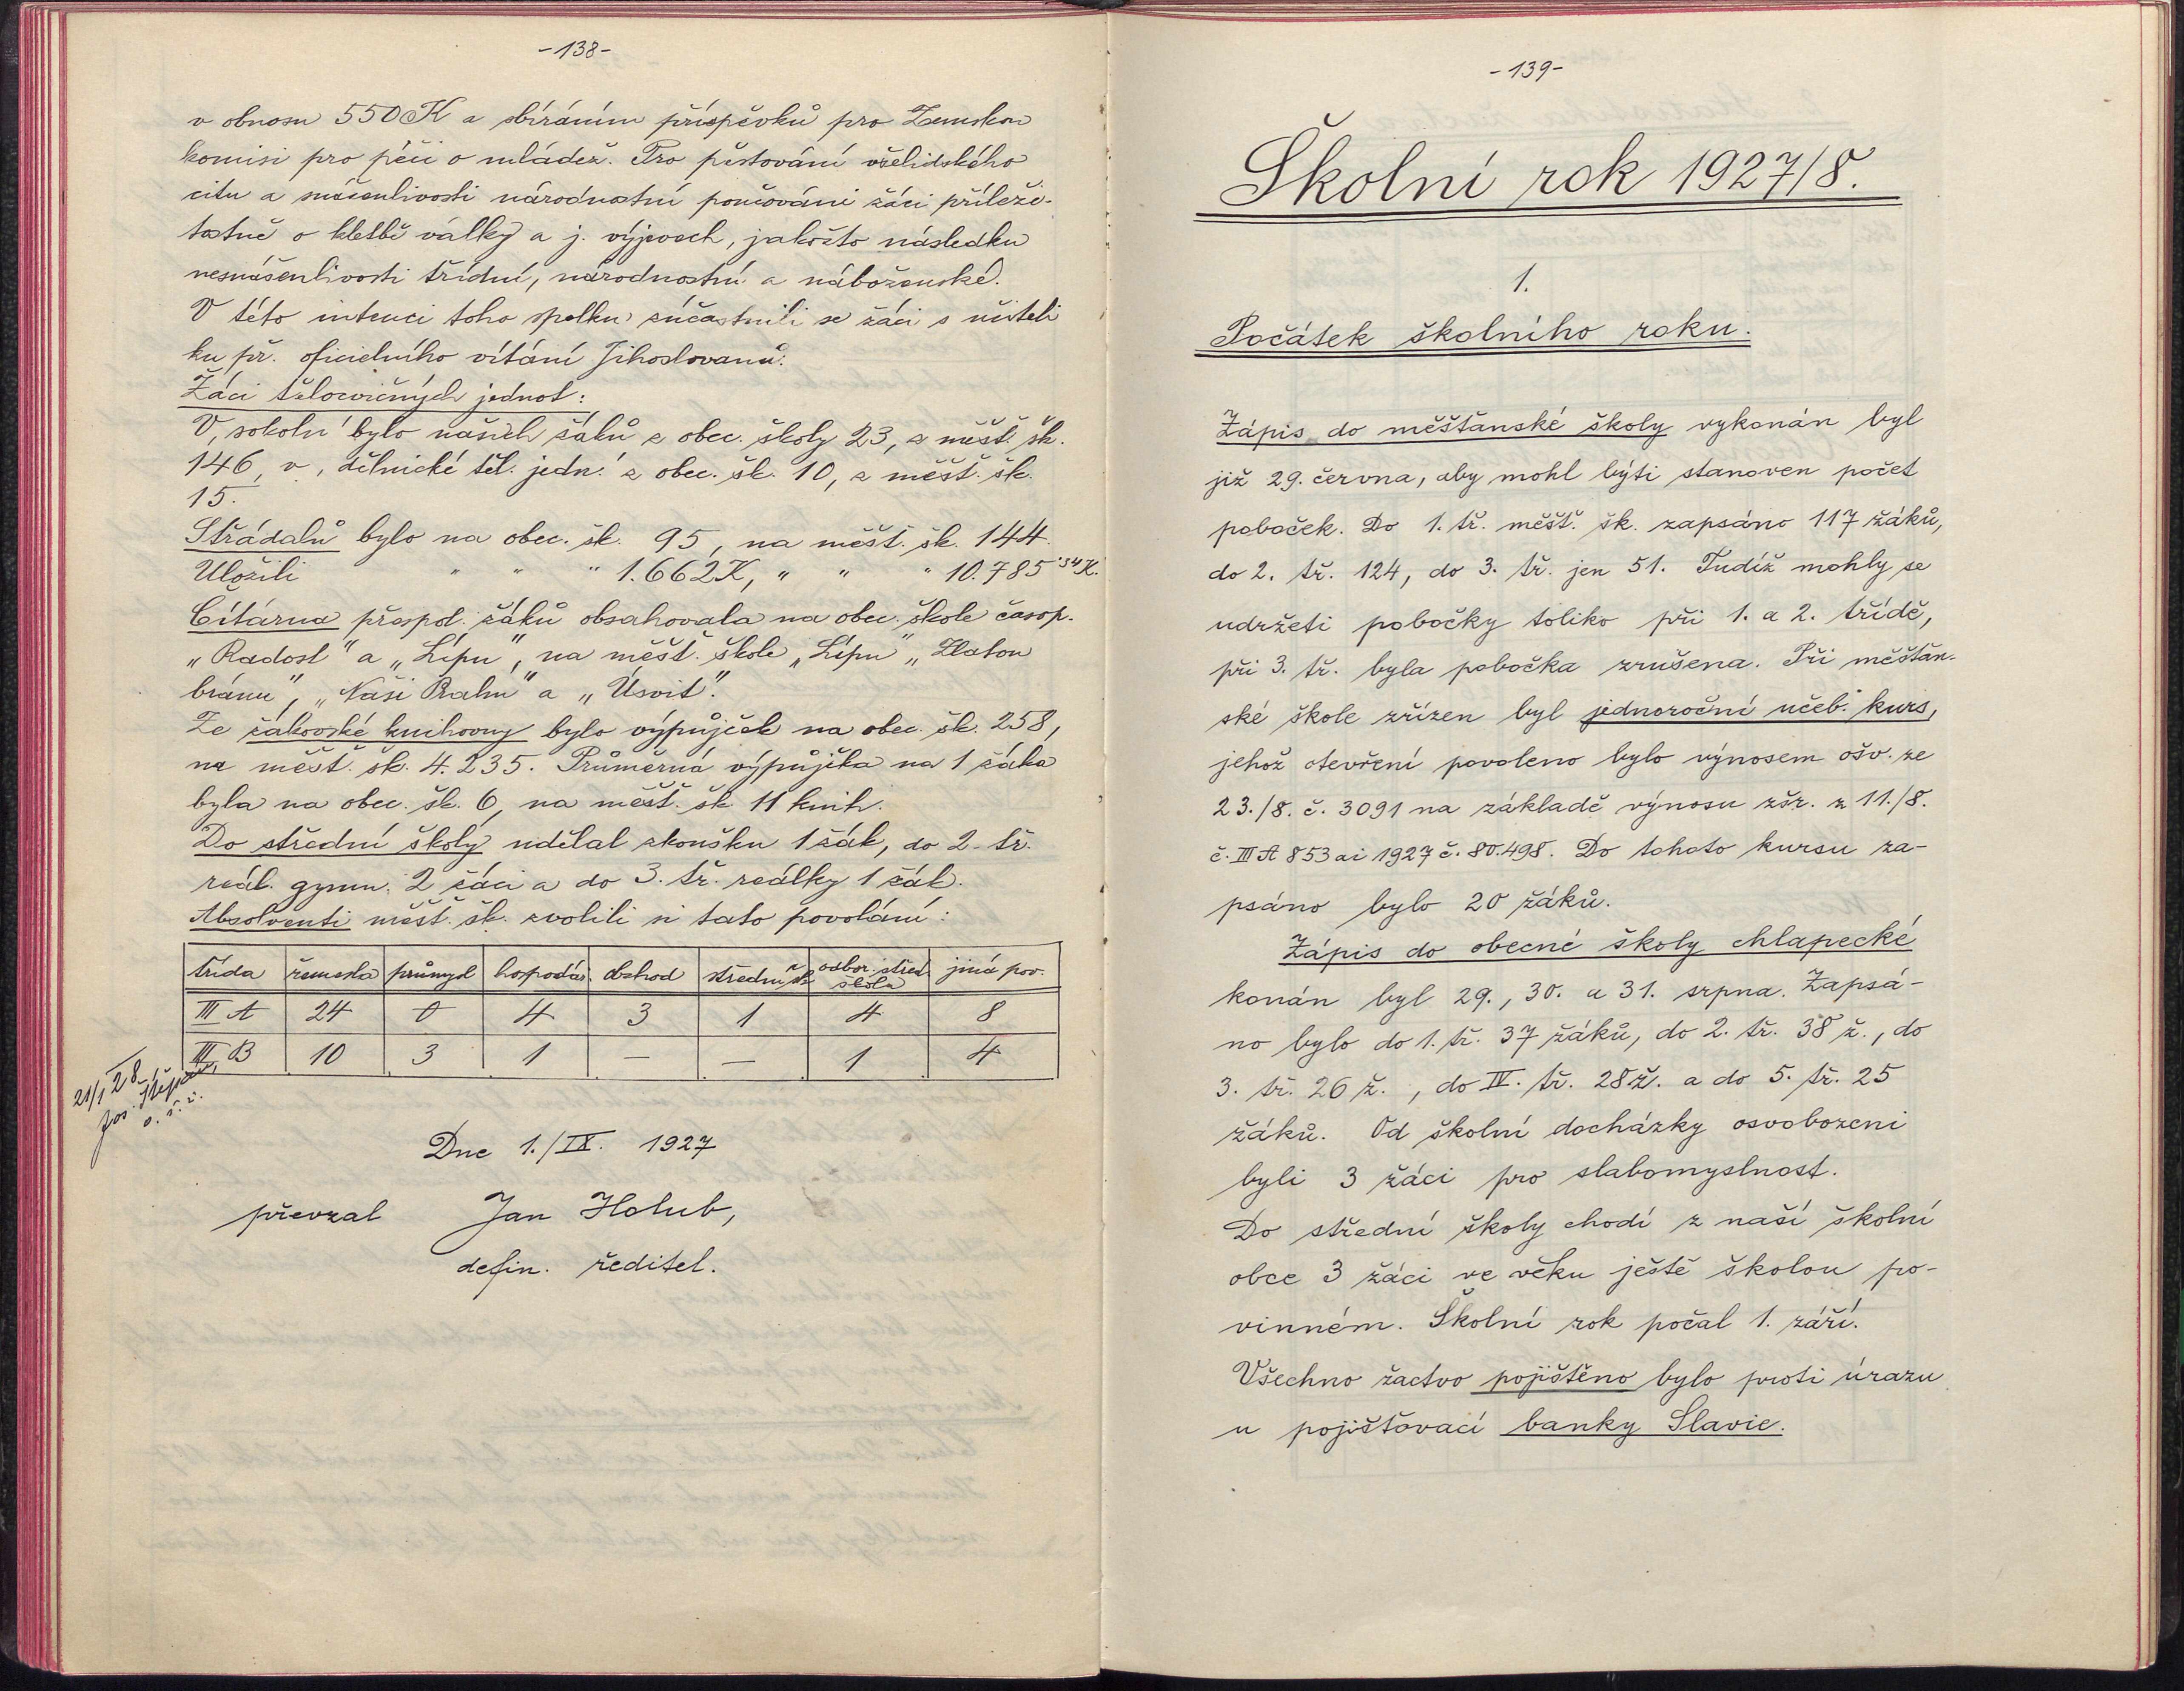 -138-
v obnosu 550 K a sbíráním příspěvků pro Zemskou
komisi pro péči o mládež. Pro pěstování všelidského
citu a snášenlivosti národnostní poučováni žáci příleži-
tostně o kletbě války a j. výjevech, jakožto následku
nesnášenlivosti třídní, národnostní a náboženské.
V této intenci toho spolku súčastnili se žáci s učiteli
ku př. oficielního vítání Jihoslovanů.
Žáci tělocvičných jednot:
V, sokolu' bylo našich žáků z obec. školy 23, z měšť. šk.
146, v, dělnické těl. jedn.' z obec. šk. 10, z měšť. šk.
15.
Střádalů bylo na obec. šk. 95, na měšť. šk. 144.
Uložili " " " 1.662 K, " " " 10.785˙34 K.
Čítárna přespol. žáků obsahovala na obec. škole časop.
„Radost" a „Lípu", na měšť. škole „Lípu" „Zlatou
bránu", „Naši Prahu" a „Úsvit".
Ze žákovské knihovny bylo výpůjček na obec. šk. 258,
na měšť. šk. 4.235. Průměrná výpůjčka na 1 žáka
byla na obec. šk. 6, na měšť. šk. 11 knih.
Do střední školy udělal zkoušku 1 žák, do 2. tř.
reál. gymn. 2 žáci a do 3. tř. reálky 1 žák.
Absolventi měšť. šk. zvolili si tato povolání:
třída řemesla průmysl hospodář. obchod střední šk. odbor. střed. škola jiná pov.
III A 24 0 4 3 1 4 8
III B 10 3 1 — — 1 4
21/1 28
Jos. Štěpán
o. š. i.
Dne 1./IX. 1927
převzal Jan Holub,
defin. ředitel.
-139-
Školní rok 1927/8.
1.
Počátek školního roku.
Zápis do měšťanské školy vykonán byl
již 29. června, aby mohl býti stanoven počet
poboček. Do 1. tř. měšť. šk. zapsáno 117 žáků,
do 2. tř. 124, do 3. tř. jen 51. Tudíž mohly se
udržeti pobočky toliko při 1. a 2. třídě,
při 3. tř. byla pobočka zrušena. Při měšťan-
ské škole zřízen byl jednoroční učeb. kurs,
jehož otevření povoleno bylo výnosem ošv. ze
23./8. č. 3091 na základě výnosu zšr. z 11./8.
č. III A 853 ai 1927 č. 80.498. Do tohoto kursu za-
psáno bylo 20 žáků.
Zápis do obecné školy chlapecké
konán byl 29., 30. a 31. srpna. Zapsá-
no bylo do 1. tř. 37 žáků, do 2. tř. 38 ž., do
3. tř. 26 ž., do IV. tř. 28 ž. a do 5. tř. 25
žáků. Od školní docházky osvobozeni
byli 3 žáci pro slabomyslnost.
Do střední školy chodí z naší školní
obce 3 žáci ve věku ještě školou po-
vinném. Školní rok počal 1. září.
Všechno žactvo pojištěno bylo proti úrazu
u pojišťovací banky Slavie.